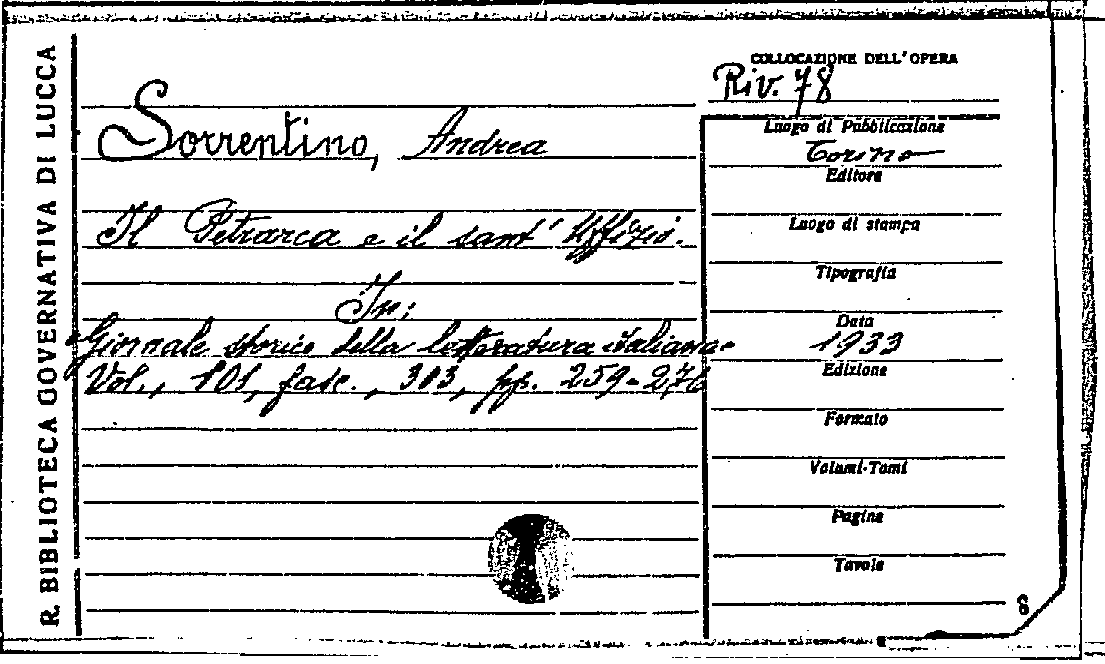 R. BIBLIOTECA GOVERNATIVA DI LUCCA
Sorrentino, Andrea
Il Petrarca e il sant' Uffizio.
In:
Giornale storico della letteratura italiana
Vol., 101, fasc., 303, pp. 259-276
COLLOCAZIONE DELL'OPERA
Riv. 78
Luogo di Pubblicazione
Torino
Editore
Luogo di stampa
Tipografia
Data
1933
Edizione
Formato
Volumi-Tomi
Pagine
Tavole